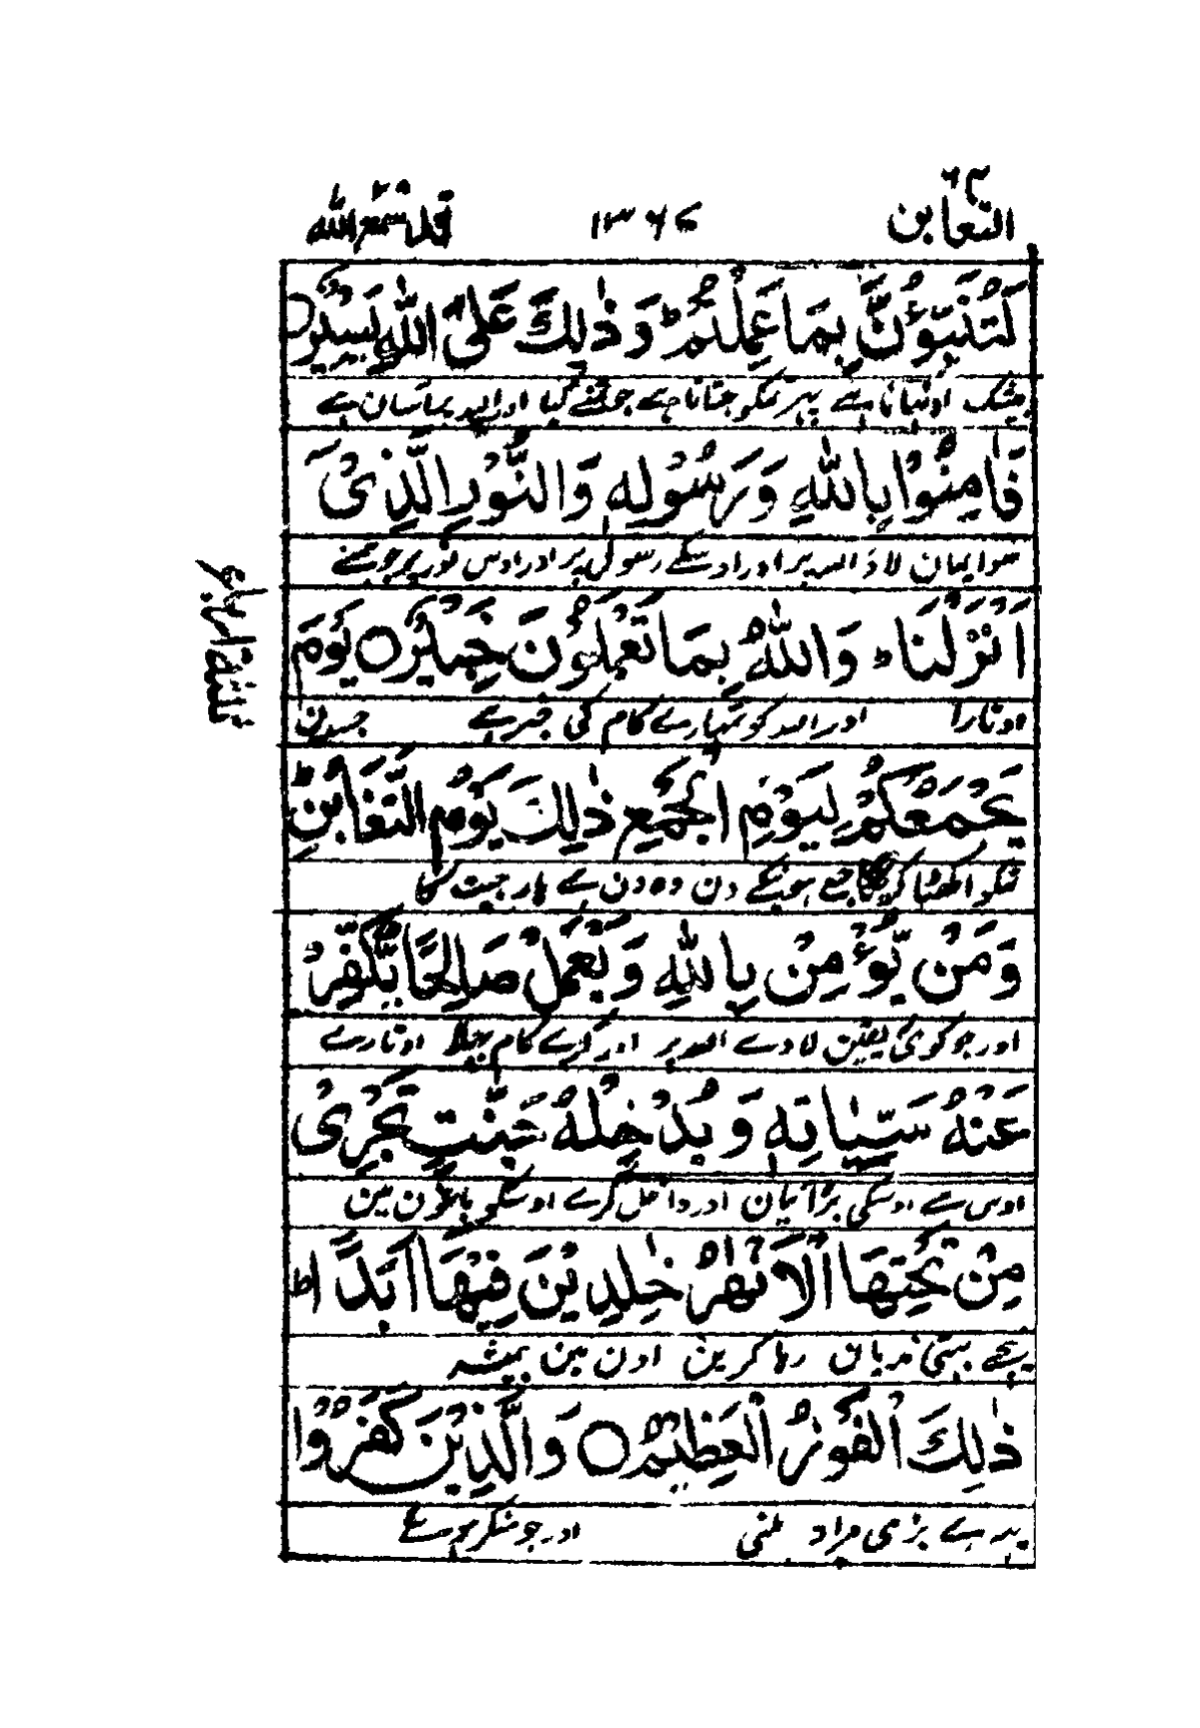 التغابن ٦٤
١٣٦٧
قد سمع الله ٢٨
لَتُنَبَّؤُنَّ بِمَا عَمِلْتُمْ ؕ وَ ذٰلِكَ عَلَى اللّٰهِ یَسِیْرٌ
بیشک اوٹھانا ہے پہر تمکو جتانا ہے جو تمنے کیا اور یہ اللہ پر آسان ہے
فَاٰمِنُوْا بِاللّٰهِ وَ رَسُوْلِهٖ وَ النُّوْرِ الَّذِیْۤ
سو ایمان لاؤ اللہ پر اور اوسکے رسول پر اور اوس نور پر جو ہمنے
اَنْزَلْنَا ؕ وَ اللّٰهُ بِمَا تَعْمَلُوْنَ خَبِیْرٌ ○ یَوْمَ
اوتارا اور اللہ کو تمہارے کام کی خبر ہے جسدن
یَجْمَعُكُمْ لِیَوْمِ الْجَمْعِ ذٰلِكَ یَوْمُ التَّغَابُنِ ؕ
تمکو اکھٹا کریگا جمع ہونیکے دن وہ دن ہے ہار جیت کا
وَ مَنْ یُّؤْمِنْۢ بِاللّٰهِ وَ یَعْمَلْ صَالِحًا یُّكَفِّرْ
اور جو کوئی یقین لاوے اللہ پر اور کرے کام بھلا اوتارے
عَنْهُ سَیِّاٰتِهٖ وَ یُدْخِلْهُ جَنّٰتٍ تَجْرِیْ
اوس سے اوسکی برائیان اور داخل کرے اوسکو باغون مین
مِنْ تَحْتِهَا الْاَنْهٰرُ خٰلِدِیْنَ فِیْهَاۤ اَبَدًا ؕ
نیچے بہتی ندیان رہا کرین اون مین ہمیشہ
ذٰلِكَ الْفَوْزُ الْعَظِیْمُ ○ وَ الَّذِیْنَ كَفَرُوْا
یہ ہے بڑی مراد ملنی اور جو منکر ہوئے